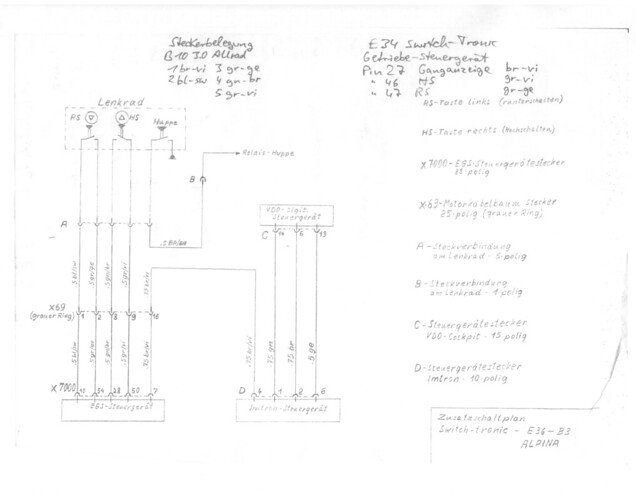 Steckerbelegung
B10 3.0 Allrad
1 br-vi 3 gr-ge
2 bl-sw 4 gn-br
5 gr-vi
E34 Switch-Tronic
Getriebe-Steuergerät
Pin 27 Ganganzeige br-vi
" 46 HS gr-vi
" 47 RS gr-ge
RS-Taste links (runterschalten)
HS-Taste rechts (Hochschalten)
X7000-EGS-Steuergerätestecker
polig
X69-Motorkabelbaum Stecker
25-polig (grauer Ring)
A-Steckverbindung
am Lenkrad - 5-polig
B-Steckverbindung
am Lenkrad - 1-polig
C-Steuergerätestecker
VDO-Cockpit - 15 polig
D-Steuergerätestecker
Imtron - 10 polig
Lenkrad
RS HS Huppe
Relais-Huppe
B
A
VDO-Digit.
Steuergerät
C 14 6 13
.5 gr/ge
.5 gr/vi
.75 br/vi
X69
(grauer Ring) 1 2 8 9 16
.75 gn
.75 br
.5 ge
X7000 54 28 50 7
EGS-Steuergerät
D 4 1 2 6
Imtron-Steuergerät
Zusatzschaltplan
Switch-tronic - E36-B3
ALPINA